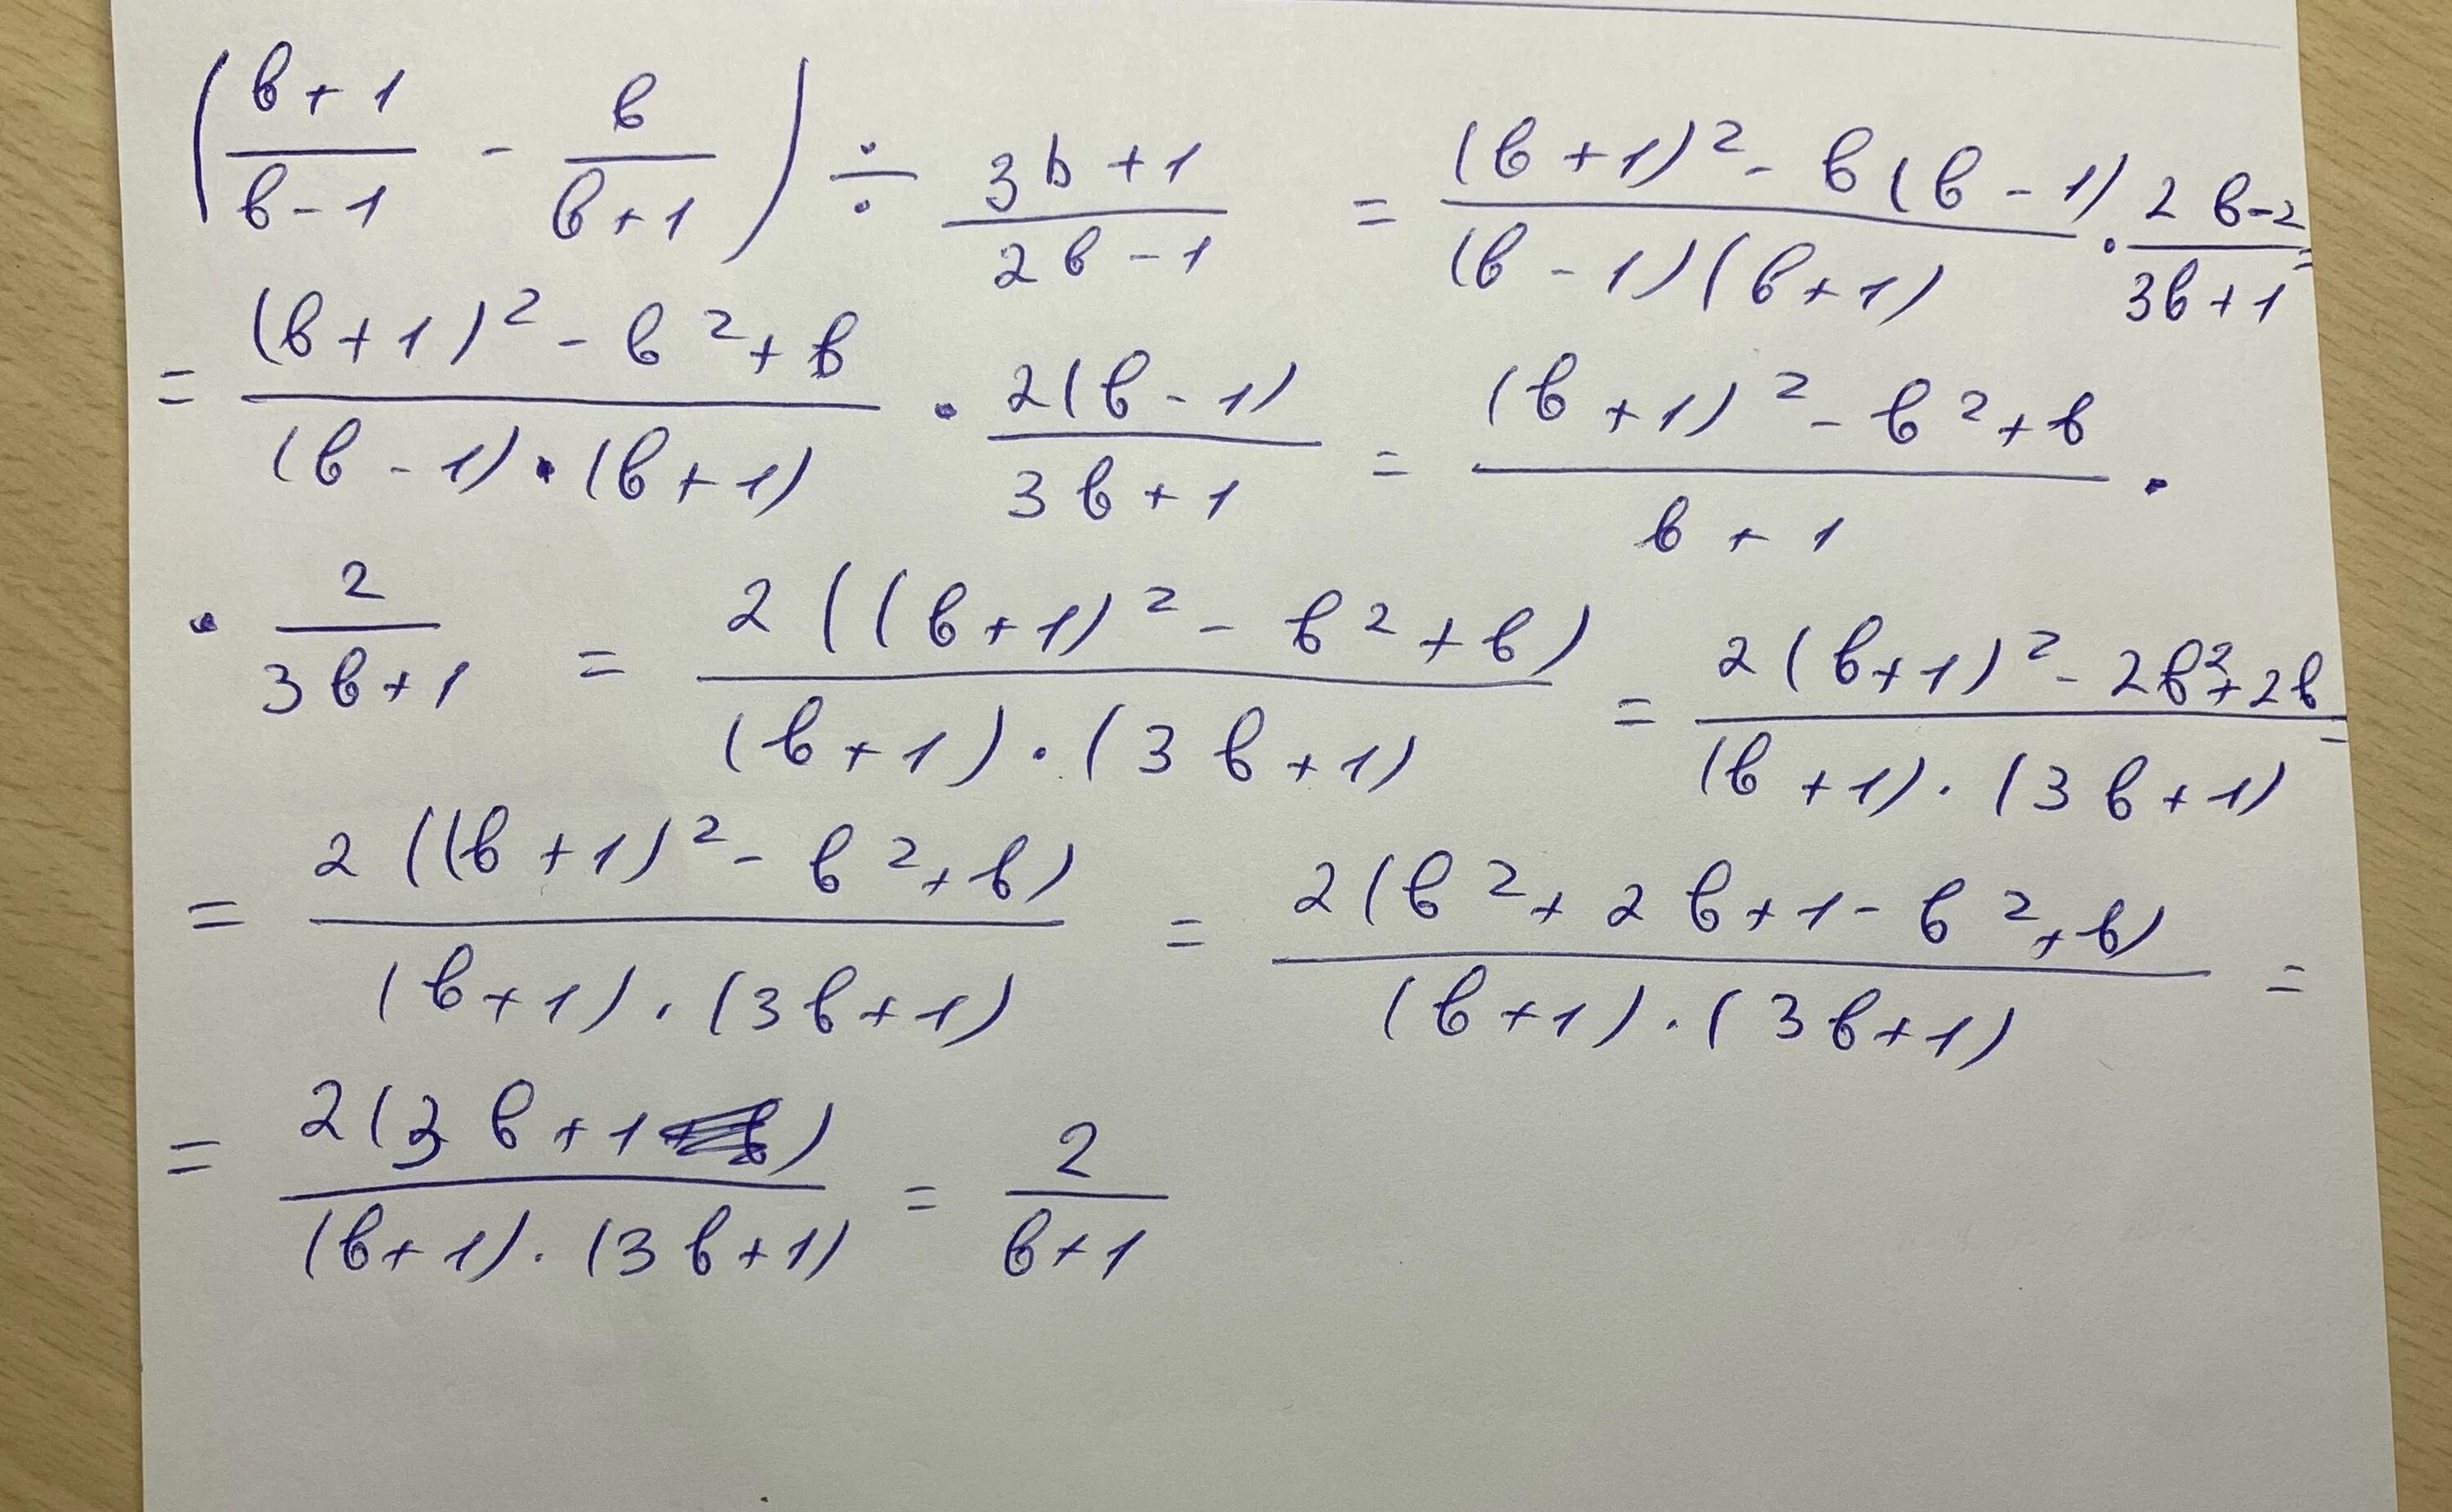 (b+1/b-1 - b/b+1) ÷ 3b+1/2b-1 = (b+1)² - b(b-1)/(b-1)(b+1) · 2b-2/3b+1 =
= (b+1)² - b² + b/(b-1)·(b+1) · 2(b-1)/3b+1 = (b+1)² - b² + b/b+1 ·
· 2/3b+1 = 2((b+1)² - b² + b)/(b+1)·(3b+1) = 2(b+1)² - 2b² + 2b/(b+1)·(3b+1) =
= 2((b+1)² - b² + b)/(b+1)·(3b+1) = 2(b² + 2b + 1 - b² + b)/(b+1)·(3b+1) =
= 2(3b+1)/(b+1)·(3b+1) = 2/b+1